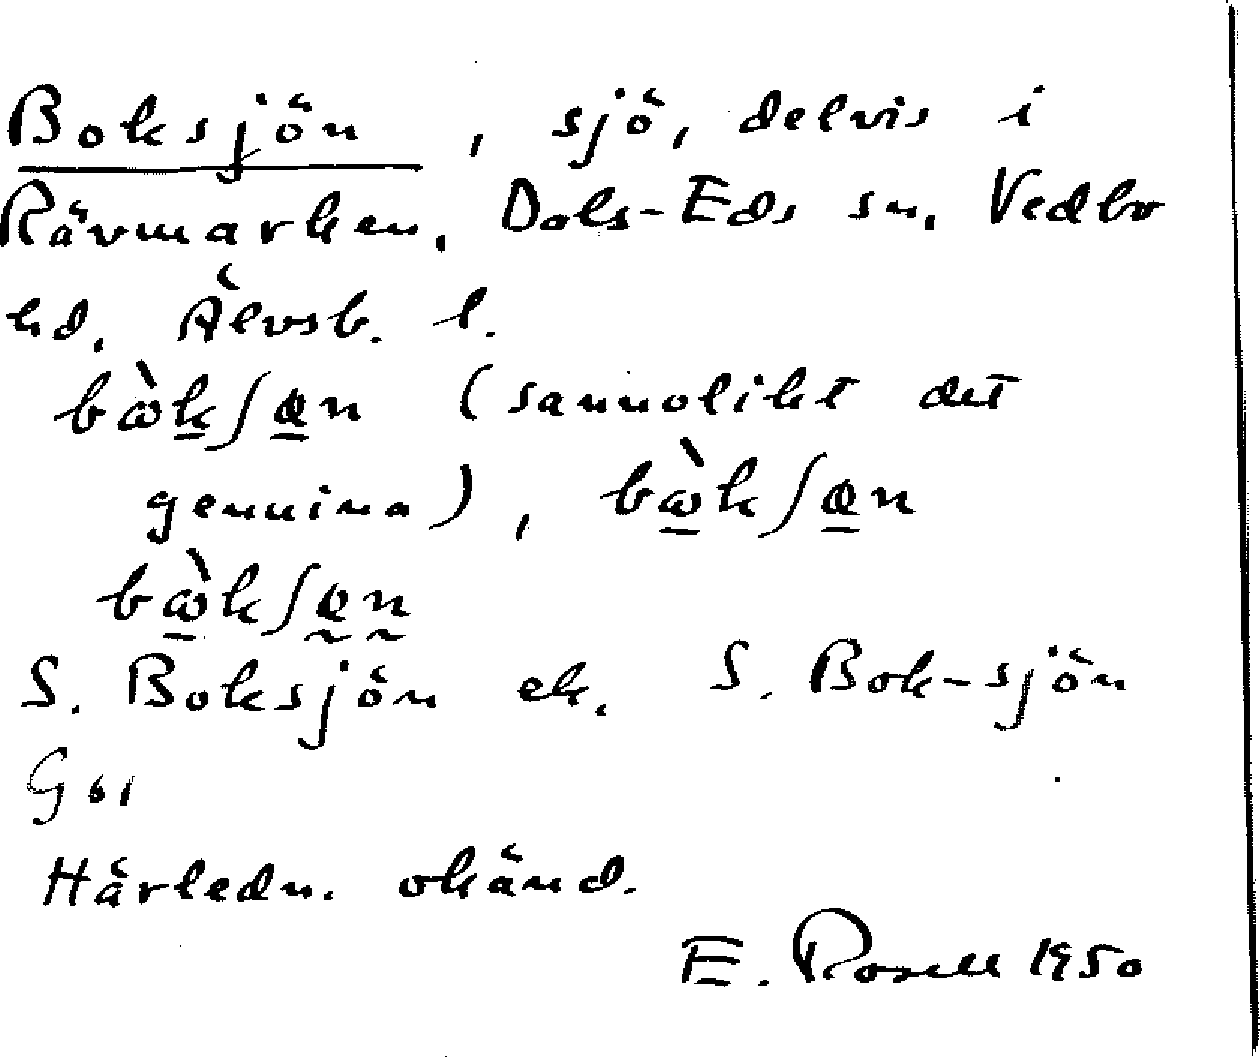 Boksjön, sjö, delvis i
Rävmarken, Dals-Eds sn, Vedbo
hd, Älvsb. l.
bὼkʃꬲn (sannolikt det
genuina), bὼkʃꬲn
bὼkʃꬲn
S. Boksjön ek. S. Bok-sjön
G 61
Härledn. okänd.
E. Rosell 1950